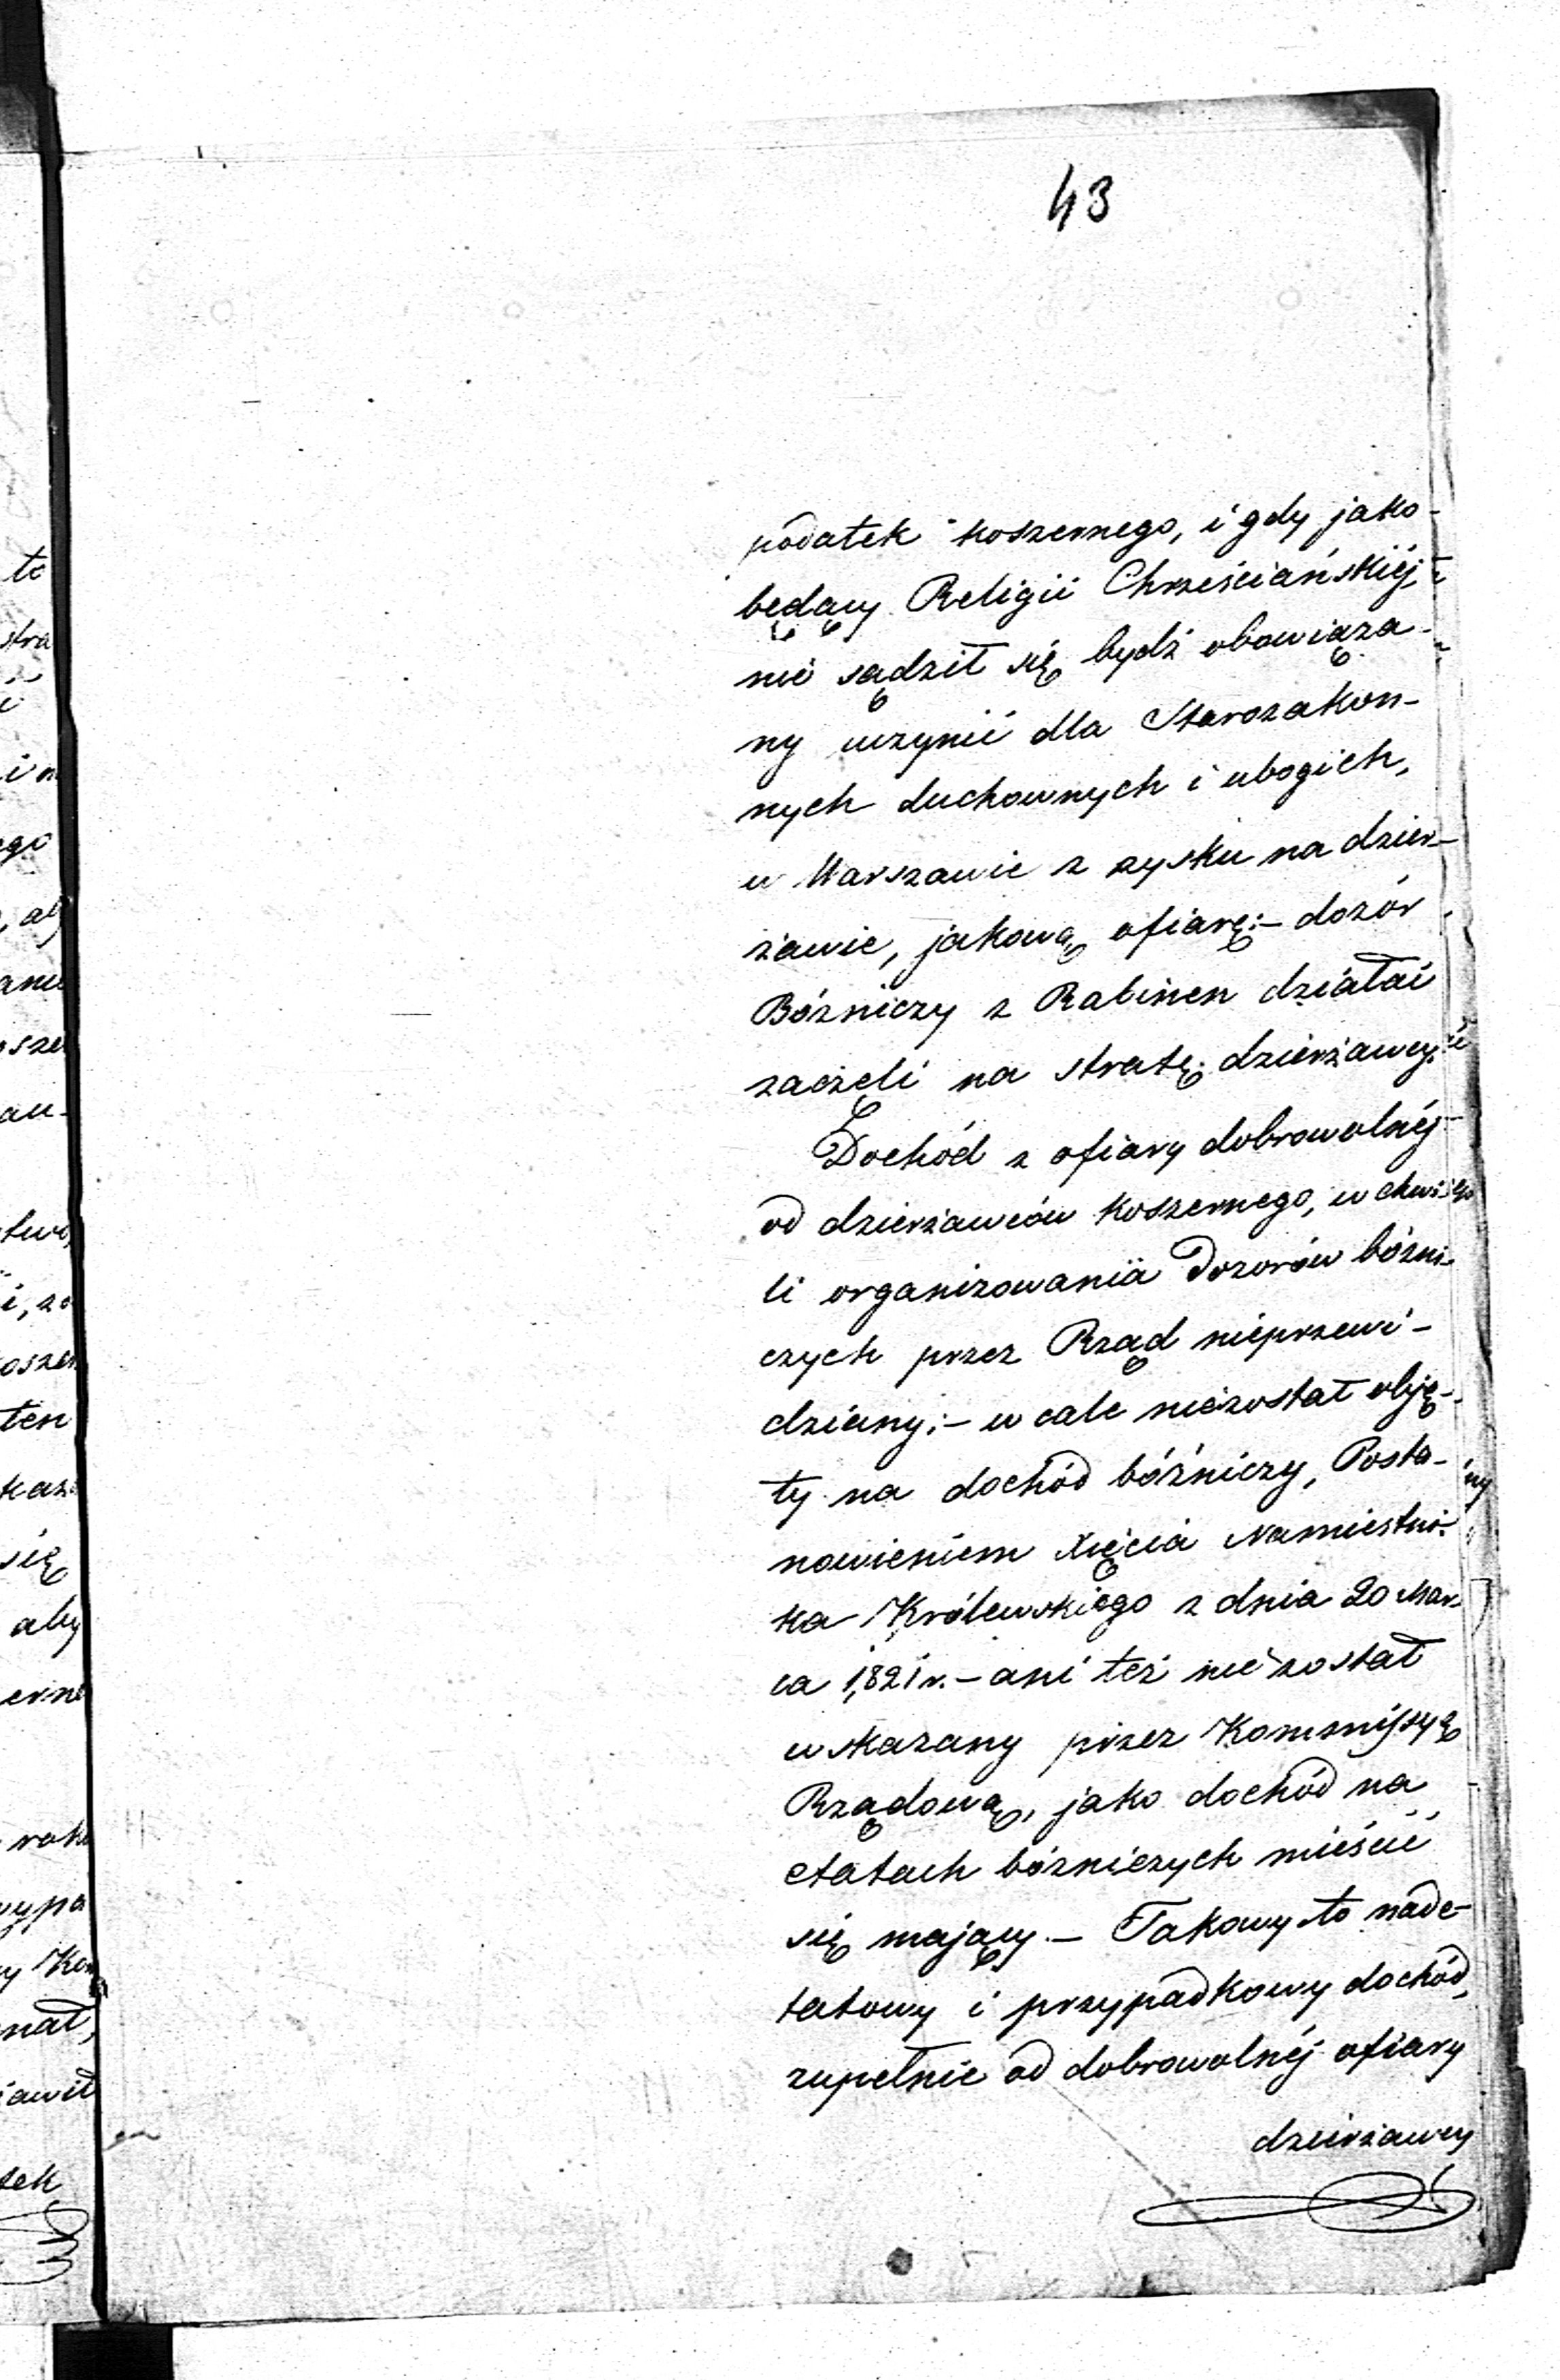 43
podatek koszernego, i gdy jako
będący Religii Chrześciańskiéj,
nie sądził się bydź obowiąza-
ny uczynić dla Starozakon-
nych duchownych i ubogich,
w Warszawie z zysku na dzier-
żawie, jakową ofiarę:- dozór
Bóżniczy z Rabinen działać
zaczęli na stratę dzierżawcy.
Dochód z ofiary dobrowolnéj
od dzierżawców koszernego, w chwi-
li organizowania Dozorów bóżni-
czych przez Rząd nieprzewi-
dziany;- w cale niezostał obję-
ty na dochód bóżniczy, Posta-
nowieniem Xięcia Namiestni-
ka Królewskiego z dnia 20 Mar-
ca 1,821 r. - ani też nie został
wskazany przez Kommissyą
Rządową, jako dochód na
etatach bóżniczych mieścić
się mający - Takowy to nade-
tatowy i przypadkowy dochód,
zupełnie od dobrowolnéj ofiary
dzierżawcy
to
stra
i
ego
, aby
osze
au-
i, zo
oszer
ten
kaz
się
aby
erne
wypa
y Kom
nał,
iawił
tek